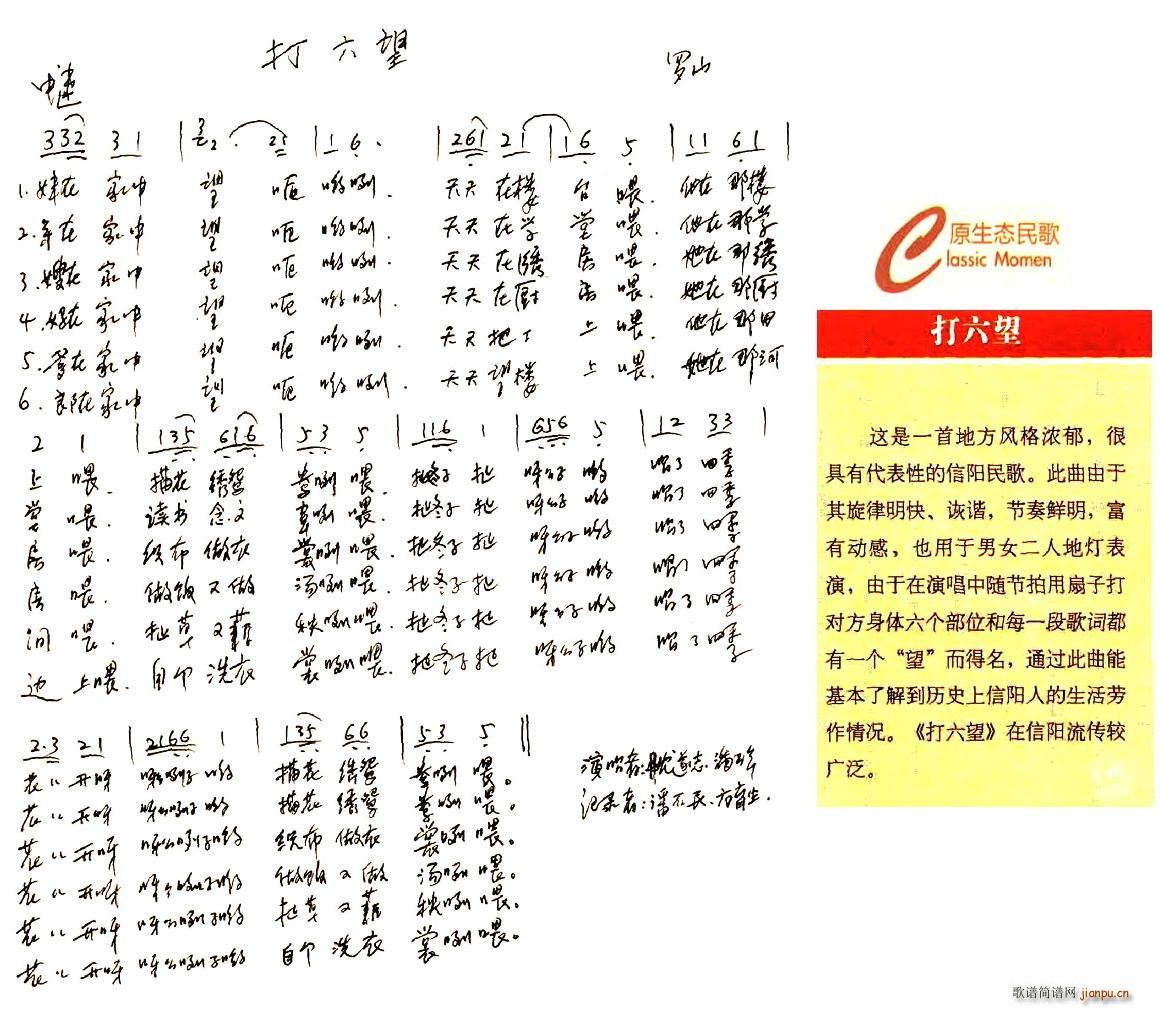 打六望
中速
罗山
332 31 | 2. 21 | 1 6. | 261 21 | 16 5 | 11 61 |
1. 在家中 望 呃 哟咧. 天天在楼 台 喂. 他在那楼
2. 在家中 望 呃 哟咧. 天天在学 堂 喂. 他在那学
3. 嫂在家中 望 呃 哟咧. 天天在绣 房 喂. 她在那绣
4. 在家中 望 呃 哟咧. 天天在厨 房 喂. 她在那厨
5. 爹在家中 望 呃 哟咧. 天天把丁 上 喂. 他在那田
6. 在家中 望 呃 哟咧. 天天望楼 上 喂. 她在那河
2 1 | 135 616 | 53 5 | 116 1 | 656 5 | 12 33 |
上 喂. 描花 绣鸳 鸯咧 喂. 冬子 呀 哟 唱了 四季
堂 喂. 读书 念文 章咧 喂. 冬子 呀 哟 唱了 四季
房 喂. 织布 做衣 裳咧 喂. 冬子 呀 哟 唱了 四季
房 喂. 做饭 又做 汤咧 喂. 冬子 呀 哟 唱了 四季
间 喂. 草 又 秧咧 喂. 冬子 呀 哟 唱了 四季
边 上喂. 自个 洗衣 裳咧 喂. 冬子 呀 哟 唱了 四季
2.3 21 | 2166 1 | 135 66 | 53 5 ‖
花儿 开呀 呀咧子哟 描花 绣鸳 鸯咧 喂。
花儿 开呀 呀咧子哟 描花 绣鸳 鸯咧 喂。
花儿 开呀 呀咧子哟 织布 做衣 裳咧 喂。
花儿 开呀 呀咧子哟 做饭 又做 汤咧 喂。
花儿 开呀 呀咧子哟 草 又 秧咧 喂。
花儿 开呀 呀咧子哟 自个 洗衣 裳咧 喂。
演唱者:
记录者:
原生态民歌
Classic Momen
打六望
这是一首地方风格浓郁，很
具有代表性的信阳民歌。此曲由于
其旋律明快、诙谐，节奏鲜明，富
有动感，也用于男女二人地灯表
演，由于在演唱中随节拍用扇子打
对方身体六个部位和每一段歌词都
有一个“望”而得名，通过此曲能
基本了解到历史上信阳人的生活劳
作情况。《打六望》在信阳流传较
广泛。
歌谱简谱网 jianpu.cn